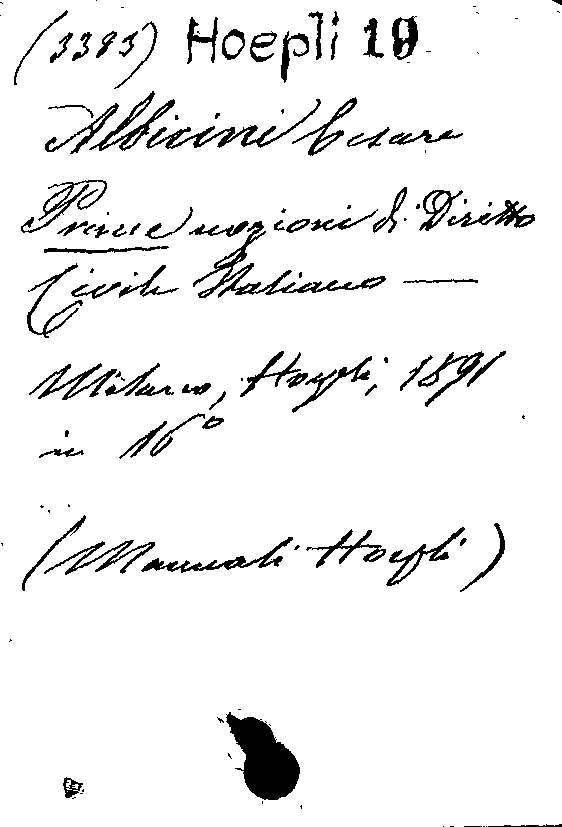 (3383) Hoepli 19
Albicini Cesare
Prime nozioni di Diritto
Civile Italiano —
Milano, Hoepli, 1891
in 16°
(Manuali Hoepli)